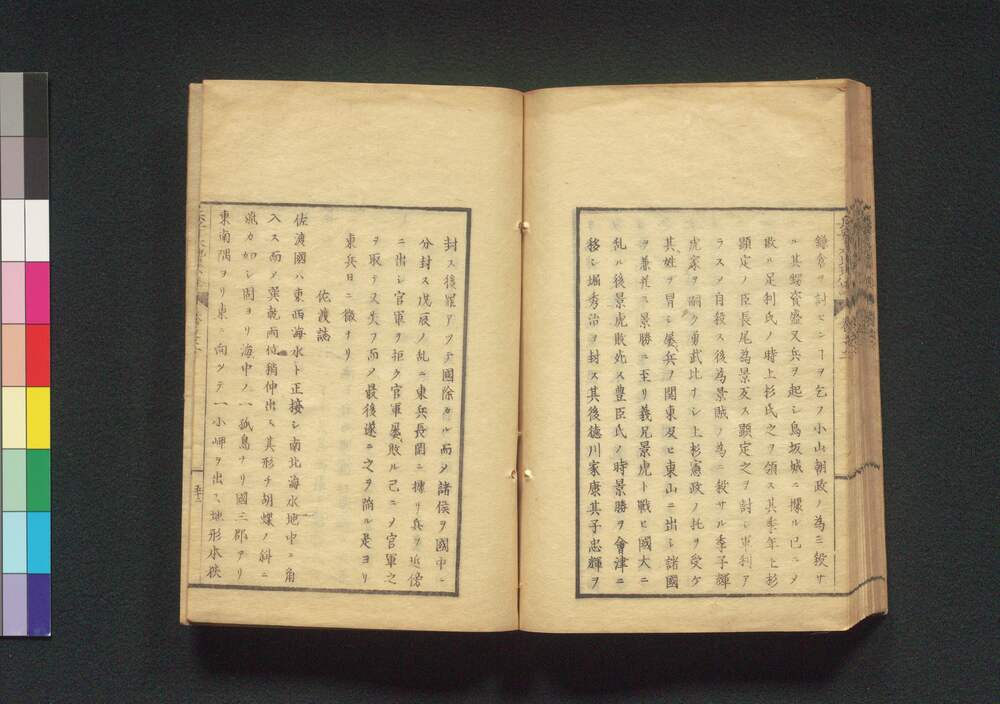 鎌倉ヲ討センヿヲ乞フ小山朝政ノ為ニ殺サ
ル其甥資盛又兵ヲ起シ鳥坂城ニ據ル已ニメ
敗ル足利氏ノ時上杉氏之ヲ領ス其季年上杉
顕定ノ臣長尾為景叛ス顕定之ヲ討シ軍利ア
ラスメ自殺ス後為景賊ノ為ニ殺サル季子輝
虎家ヲ嗣ク勇武比ナシ上杉憲政ノ托ヲ受ケ
其姓ヲ冒シ屡兵ヲ関東及ヒ東山ニ出シ諸國
ヲ兼並ス景勝ニ至リ義兄景虎ト戦ヒ國大ニ
乱ル後景虎敗死ス豊臣氏ノ時景勝ヲ會津ニ
移シ堀秀治ヲ封ス其後徳川家康其子忠輝ヲ
封ス後罪アツテ國除カル而メ諸侯ヲ國中ニ
分封ス戊辰ノ乱ニ東兵長岡ニ據リ兵ヲ近傍
ニ出シ官軍ヲ拒ク官軍屡敗ル已ニメ官軍之
ヲ取テ又失フ而メ最後遂ニ之ヲ陥ル是ヨリ
東兵日ニ微ナリ
佐渡誌
佐渡國ハ東西海水ト正接シ南北海水地中ニ角
入ス而メ巽乾両位稍伸出ス其形チ胡螺ノ斜ニ
流カ如シ固ヨリ海中ノ一孤島ナリ國三郡アリ
東南隅ヨリ東ニ向ツテ一小岬ヲ出ス地形本狹